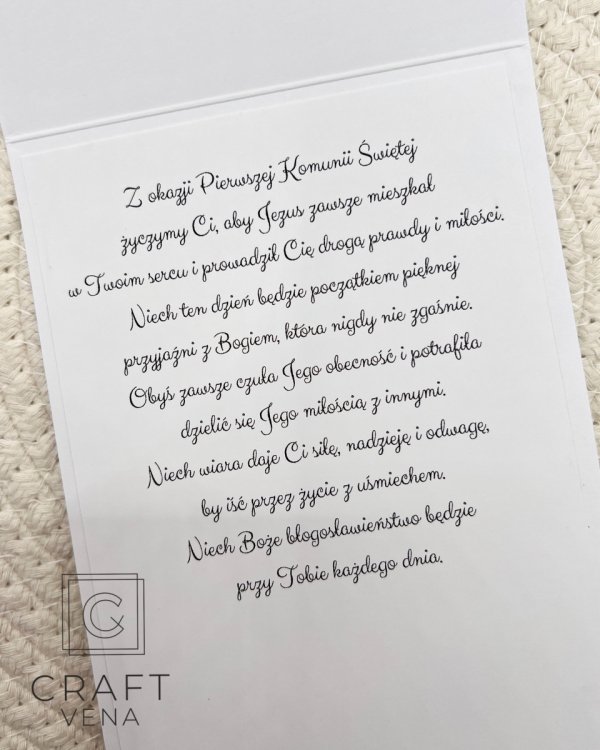 Z okazji Pierwszej Komunii Świętej
życzymy Ci, aby Jezus zawsze mieszkał
w Twoim sercu i prowadził Cię drogą prawdy i miłości.
Niech ten dzień będzie początkiem pięknej
przyjaźni z Bogiem, która nigdy nie zgaśnie.
Obyś zawsze czuła Jego obecność i potrafiła
dzielić się Jego miłością z innymi.
Niech wiara daje Ci siłę, nadzieję i odwagę,
by iść przez życie z uśmiechem.
Niech Boże błogosławieństwo będzie
przy Tobie każdego dnia.
CRAFT
VENA